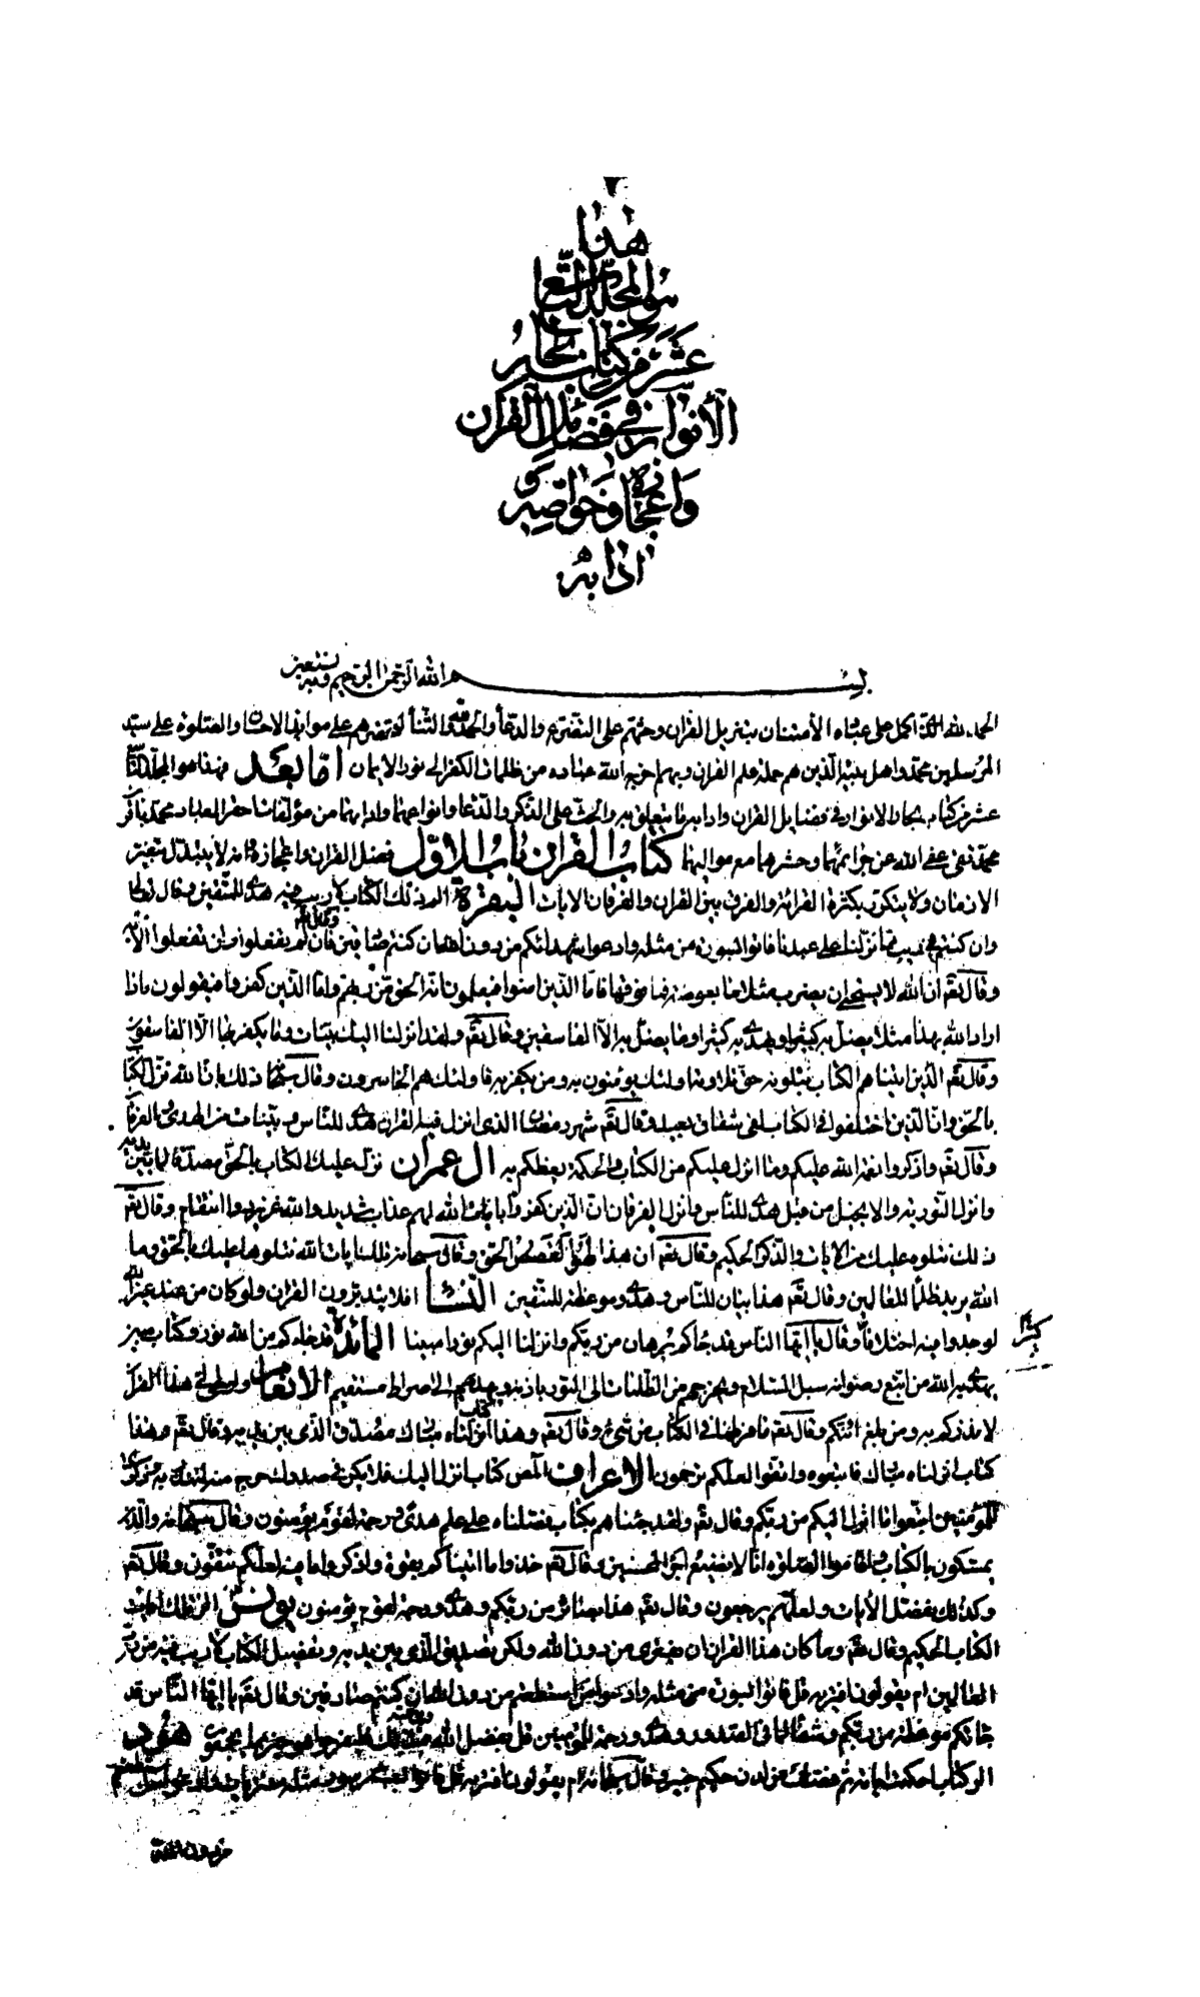 هذا
هو المجلد التاسع
عشر من كتاب بحار
الأنوار في فضائل القرآن
واعجازه وخواصه و
ادابه
بسم الله الرحمن الرحيم وبه نستعين
الحمد لله الذي اكمل على عباده الامتنان بتنزيل القران وحثهم على التضرع والدعاء والحمد والثناء والصلوة على سيد
المرسلين محمد واهل بيته الذين هم حملة علم القران وبهم اخرج الله عباده من ظلمات الكفر الى نور الايمان اما بعد فهذا هو المجلد التاسع
عشر من كتاب بحار الانوار في فضايل القران وادابه وما يتعلق به والحث على الذكر والدعا وانواعهما وادابهما من مؤلفات احقر العباد محمد باقر
محمد تقي عفى الله عن جرائمهما وحشرهما مع مواليهما كتاب القران باب الاول فضل القران واعجازه وانه لا يتبدل بتغير
الازمان ولا يتكرر بكثرة القرائة والفرق بين القران والفرقان الايات البقرة الم ذلك الكتاب لا ريب فيه هدى للمتقين وقال تعالى
وان كنتم في ريب مما نزلنا على عبدنا فاتوا بسورة من مثله وادعوا شهدائكم من دون الله ان كنتم صادقين فان لم تفعلوا ولن تفعلوا الاية
وقال تعم ان الله لا يستحيي ان يضرب مثلا ما بعوضة فما فوقها فاما الذين امنوا فيعلمون انه الحق من ربهم واما الذين كفروا فيقولون ماذا
اراد الله بهذا مثلا يضل به كثيرا ويهدي به كثيرا وما يضل به الا الفاسقين وقال تعم ولقد انزلنا اليك ايات بينات وما يكفر بها الا الفاسقون
وقال تعم الذين اتيناهم الكتاب يتلونه حق تلاوته اولئك يؤمنون به ومن يكفر به فاولئك هم الخاسرون وقال سبحانه ذلك بان الله نزل الكتاب
بالحق وان الذين اختلفوا في الكتاب لفي شقاق بعيد وقال تعم شهر رمضان الذي انزل فيه القران هدى للناس وبينات من الهدى والفرقان
وقال تعم واذكروا نعمة الله عليكم وما انزل عليكم من الكتاب والحكمة يعظكم به ال عمران نزل عليك الكتاب بالحق مصدقا لما بين يديه
وانزل التورية والانجيل من قبل هدى للناس وانزل الفرقان ان الذين كفروا بايات الله لهم عذاب شديد والله عزيز ذو انتقام وقال تعم
ذلك نتلوه عليك من الايات والذكر الحكيم وقال تعم ان هذا لهو القصص الحق وقال سبحانه تلك ايات الله نتلوها عليك بالحق وما
الله يريد ظلما للعالمين وقال تعم هذا بيان للناس وهدى وموعظة للمتقين النساء افلا يتدبرون القران ولو كان من عند غير الله
لوجدوا فيه اختلافا كثيرا وقال يا ايها الناس قد جاءكم برهان من ربكم وانزلنا اليكم نورا مبينا المائدة قد جاءكم من الله نور وكتاب مبين
يهدي به الله من اتبع رضوانه سبل السلام ويخرجهم من الظلمات الى النور باذنه ويهديهم الى صراط مستقيم الانعام واوحي الي هذا القران
لانذركم به ومن بلغ ائنكم وقال تعم ما فرطنا في الكتاب من شيء وقال تعم وهذا كتاب انزلناه مبارك مصدق الذي بين يديه وقال تعم وهذا
كتاب انزلناه مبارك فاتبعوه واتقوا لعلكم ترحمون الاعراف المص كتاب انزل اليك فلا يكن في صدرك حرج منه لتنذر به وذكرى
للمؤمنين اتبعوا ما انزل اليكم من ربكم وقال تعم ولقد جئناهم بكتاب فصلناه على علم هدى ورحمة لقوم يؤمنون وقال سبحانه والذين
يمسكون بالكتاب واقاموا الصلوة انا لا نضيع اجر المصلحين وقال تعم خذوا ما اتيناكم بقوة واذكروا ما فيه لعلكم تتقون وقال تعم
وكذلك نفصل الايات ولعلهم يرجعون وقال تعم هذا بصائر من ربكم وهدى ورحمة لقوم يؤمنون يونس الر تلك ايات
الكتاب الحكيم وقال تعم وما كان هذا القران ان يفترى من دون الله ولكن تصديق الذي بين يديه وتفصيل الكتاب لا ريب فيه من رب
العالمين ام يقولون افتريه قل فاتوا بسورة من مثله وادعوا من استطعتم من دون الله ان كنتم صادقين وقال تعم يا ايها الناس قد
جائكم موعظة من ربكم وشفاء لما في الصدور وهدى ورحمة للمؤمنين قل بفضل الله وبرحمته فبذلك فليفرحوا هو خير مما يجمعون هود
الر كتاب احكمت اياته ثم فصلت من لدن حكيم خبير وقال سبحانه ام يقولون افتريه قل فاتوا بعشر سور مثله مفتريات وادعوا من استطعتم
من دون الله